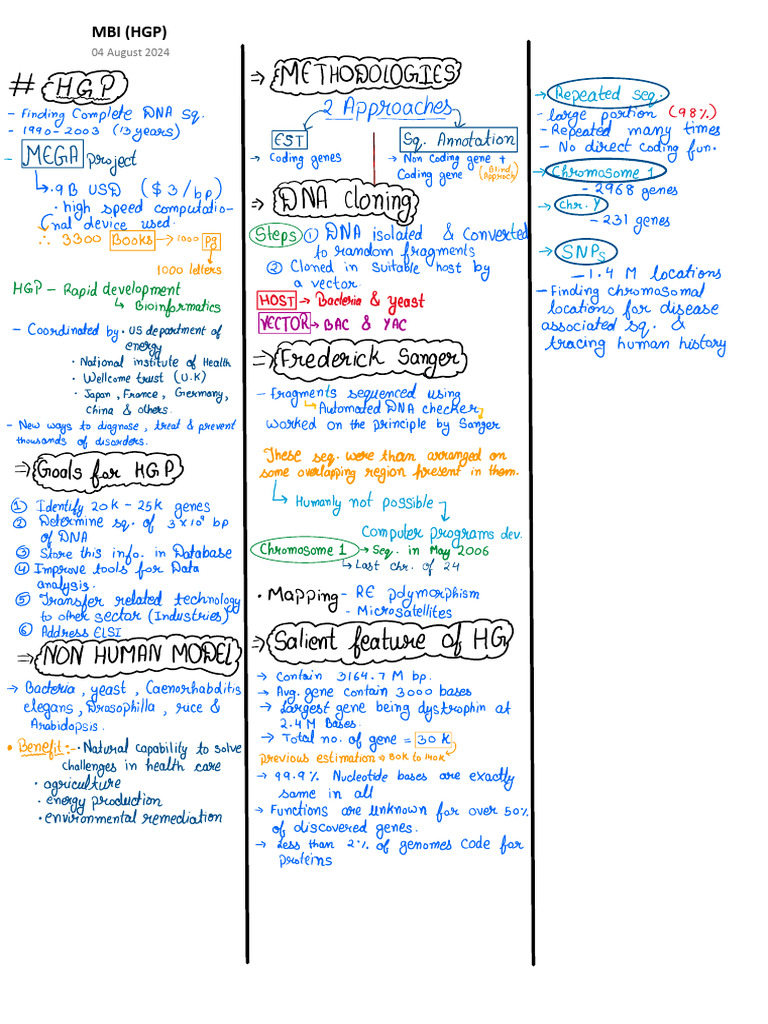 MBI (HGP)
04 August 2024
# HGP
- Finding Complete DNA Sq.
- 1990-2003 (13 years)
- MEGA project
↳ 9 B USD ($3/bp)
• high speed computatio-
nal device used.
∴ 3300 Books → 1000 pg
1000 letters
HGP - Rapid development
↳ Bioinformatics
- Coordinated by • US department of
energy
• National institute of Health
• Wellcome trust (U.K)
• Japan, France, Germany,
China & others.
- New ways to diagnose, treat & prevent
thousands of disorders.
⇒ Goals for HGP
① Identify 20k - 25k genes
② Determine sq. of 3x10⁹ bp
of DNA
③ Store this info. in Database
④ Improve tools for Data
analysis.
⑤ Transfer related technology
to other sector (Industries)
⑥ Address ELSI
⇒ NON HUMAN MODEL
→ Bacteria, yeast, Caenorhabditis
elegans, Drosophilla, rice &
Arabidopsis.
• Benefit:- • Natural capability to solve
challenges in health care
• agriculture
• energy production
• environmental remediation
⇒ METHODOLOGIES
2 Approaches
EST
→ Coding genes
Sq. Annotation
→ Non Coding gene +
Coding gene (Blind Approach)
⇒ DNA Cloning
Steps ① DNA isolated & Converted
to random fragments
② Cloned in suitable host by
a vector.
HOST → Bacteria & yeast
VECTOR → BAC & YAC
⇒ Frederick Sanger
- Fragments sequenced using
↳ Automated DNA checker
worked on the principle by Sanger
These seq. were than arranged on
some overlapping region present in them.
↳ Humanly not possible
Computer programs dev.
Chromosome 1 → Seq. in May 2006
↳ Last chr. of 24
• Mapping - RE polymorphism
- Microsatellites
⇒ Salient feature of HG
→ Contain 3164.7 M bp.
→ Avg. gene contain 3000 bases
→ Largest gene being dystrophin at
2.4 M Bases.
→ Total no. of gene = 30K
previous estimation → 80K to 140K
→ 99.9% Nucleotide bases are exactly
same in all
→ Functions are unknown for over 50%
of discovered genes.
→ Less than 2% of genomes code for
proteins
→ Repeated seq.
- large portion (98%)
- Repeated many times
- No direct coding fun.
→ Chromosome 1
- 2968 genes
→ Chr. Y
- 231 genes
→ SNPs
- 1.4 M locations
- Finding chromosomal
locations for disease
associated sq. &
tracing human history